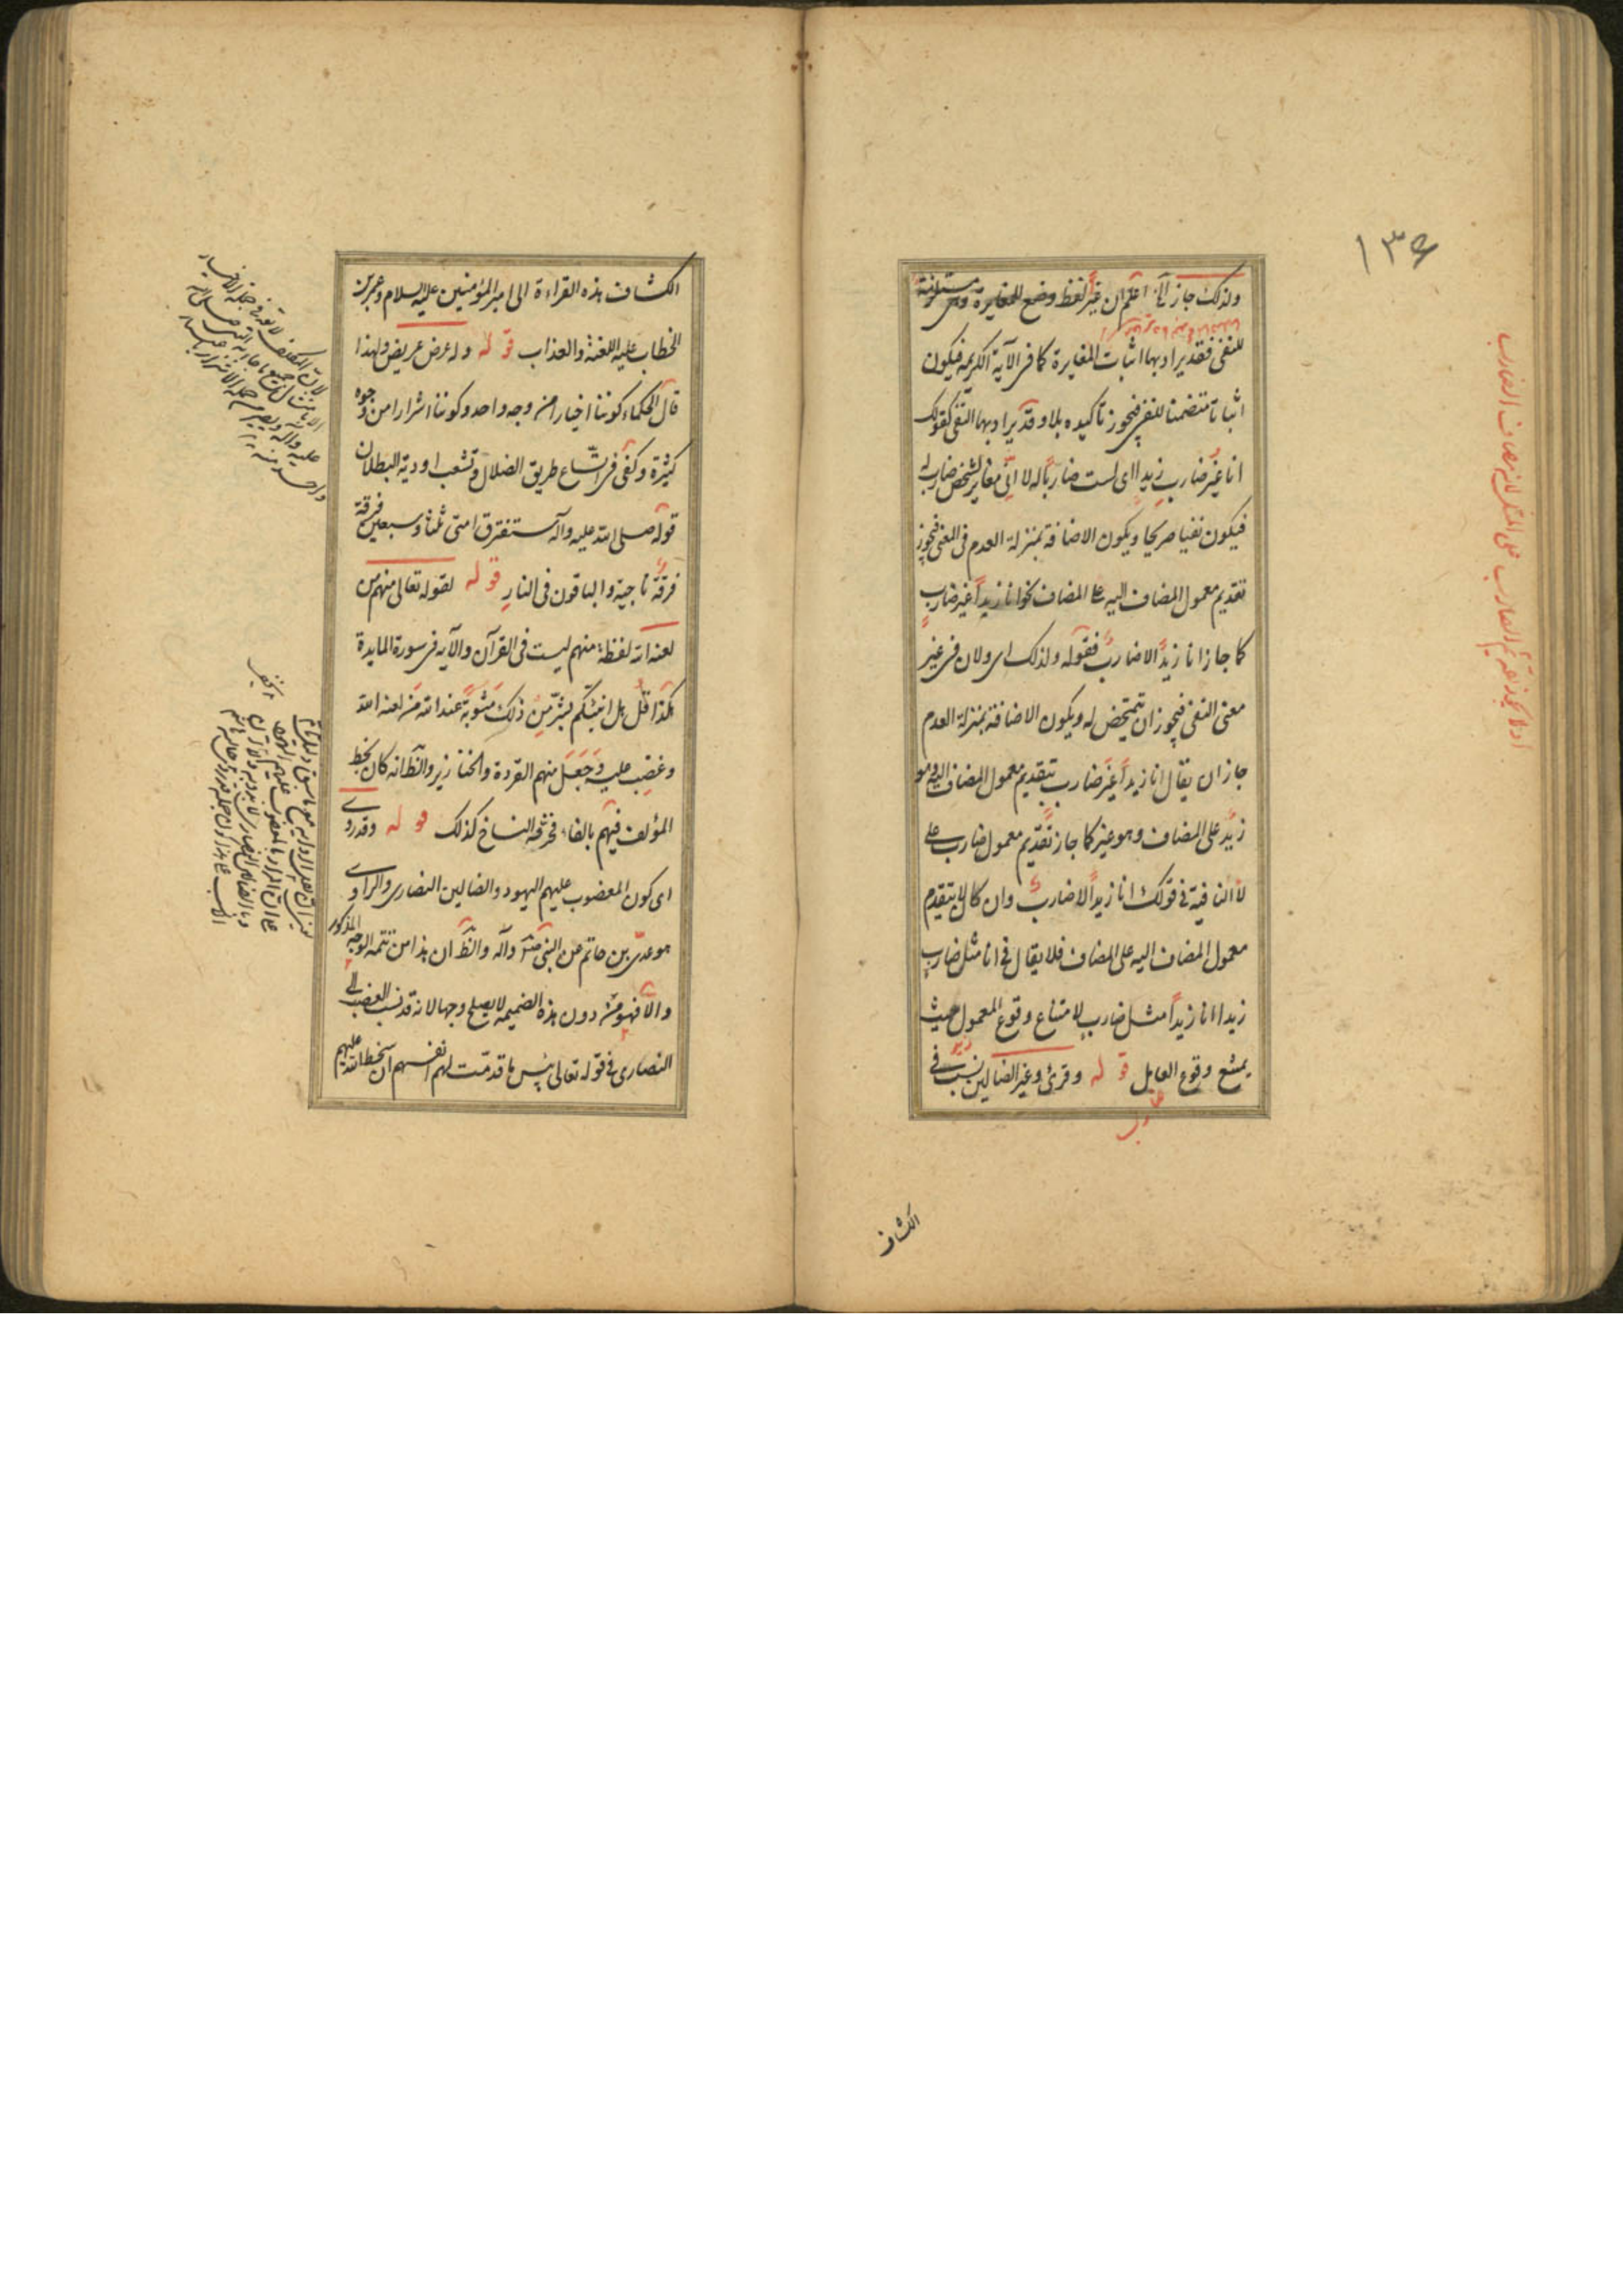 ١٣٤
ولذلك جاز الخ اعلم ان غير لفظ وضع للمغايرة وهى مستلزمة
للنفى فقد يراد بها اثبات المغايرة كما فى الآية الكريمة فيكون
اثباتا متضمنا للنفى فيجوز تاكيده بلا وقد يراد بها النفى كقولك
انا غير ضارب زيدا اى لست ضاربا له لا انى مغاير لشخص ضارب له
فيكون نفيا صريحا ويكون الاضافة بمنزلة العدم فى المعنى فيجوز
تقديم معمول المضاف اليه على المضاف نحو انا زيدا غير ضارب
كما جاز انا زيدا لا ضارب فقوله ولذلك اى ولان فى غير
معنى النفى فيجوز ان يتمحض له ويكون الاضافة بمنزلة العدم
جاز ان يقال انا زيدا غير ضارب بتقديم معمول المضاف اليه وهو
زيد على المضاف وهو غير كما جاز تقديم معمول ضارب على
لا النافية فى قولك انا زيدا لا ضارب وان كان لا يتقدم
معمول المضاف اليه على المضاف فلا يقال فى انا مثل ضارب
زيدا انا زيدا مثل ضارب لامتناع وقوع المعمول حيث
يمتنع وقوع العامل قوله وقرئ وغير الضالين نسب فى
الكشاف
الكشاف هذه القراءة الى امير المؤمنين عليه السلام وعمر بن
الخطاب عليه اللعنة والعذاب قوله وله عرض عريض ولهذا
قال الحكماء كوننا اخيارا من وجه واحد وكوننا اشرارا من وجوه
كثيرة وكفى فى اتساع طريق الضلال وتشعب اودية البطلان
قوله صلى الله عليه وآله ستفترق امتى ثلثا وسبعين فرقة
فرقة ناجية والباقون فى النار قوله لقوله تعالى منهم من
لعنه الله لفظة منهم ليست فى القرآن والآية فى سورة المايدة
هكذا قل هل انبئكم بشر من ذلك مثوبة عند الله من لعنه الله
وغضب عليه وجعل منهم القردة والخنازير والظ انه كان بخط
المؤلف فيهم بالفاء فحرفه النساخ كذلك قوله وقد روى
اى كون المغضوب عليهم اليهود والضالين النصارى والراوى
هو عدى بن حاتم عن النبى صلى الله وآله والظ ان هذا من تتمة الوجه المذكور
والا فهو من دون هذه الضميمة لا يصلح وجها لانه قد نسب الغضب الى
النصارى فى قوله تعالى لبئس ما قدمت لهم انفسهم ان سخط الله عليهم